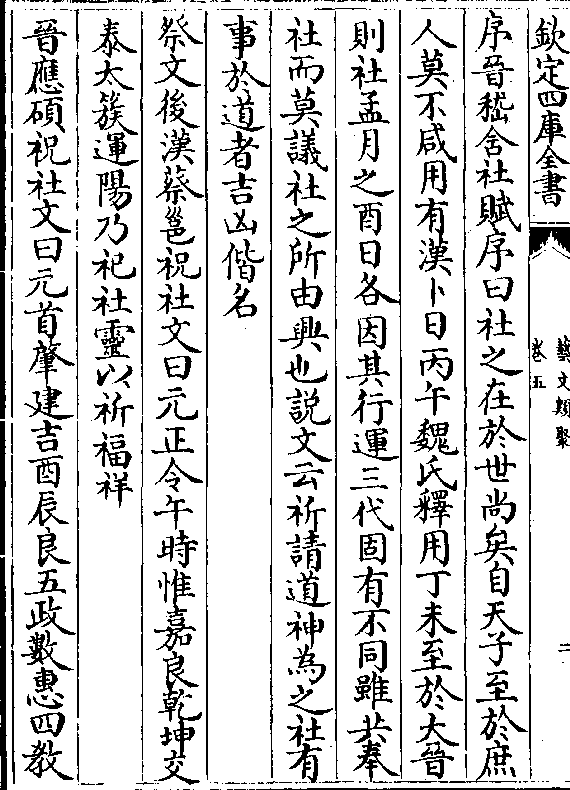 欽定四庫全書
藝文類聚
卷五
二
序晉嵇含社賦序曰社之在於世尚矣自天子至於庶
人莫不咸用有漢卜日丙午魏氏釋用丁未至於大晉
則社孟月之酉日各因其行運三代固有不同雖共奉
社而莫議社之所由興也説文云祈請道神為之社有
事於道者吉凶偕名
祭文後漢蔡邕祝社文曰元正令午時惟嘉良乾坤交
泰太簇運陽乃祀社靈以祈福祥
晉應碩祝社文曰元首肇建吉酉辰良五政敷惠四教